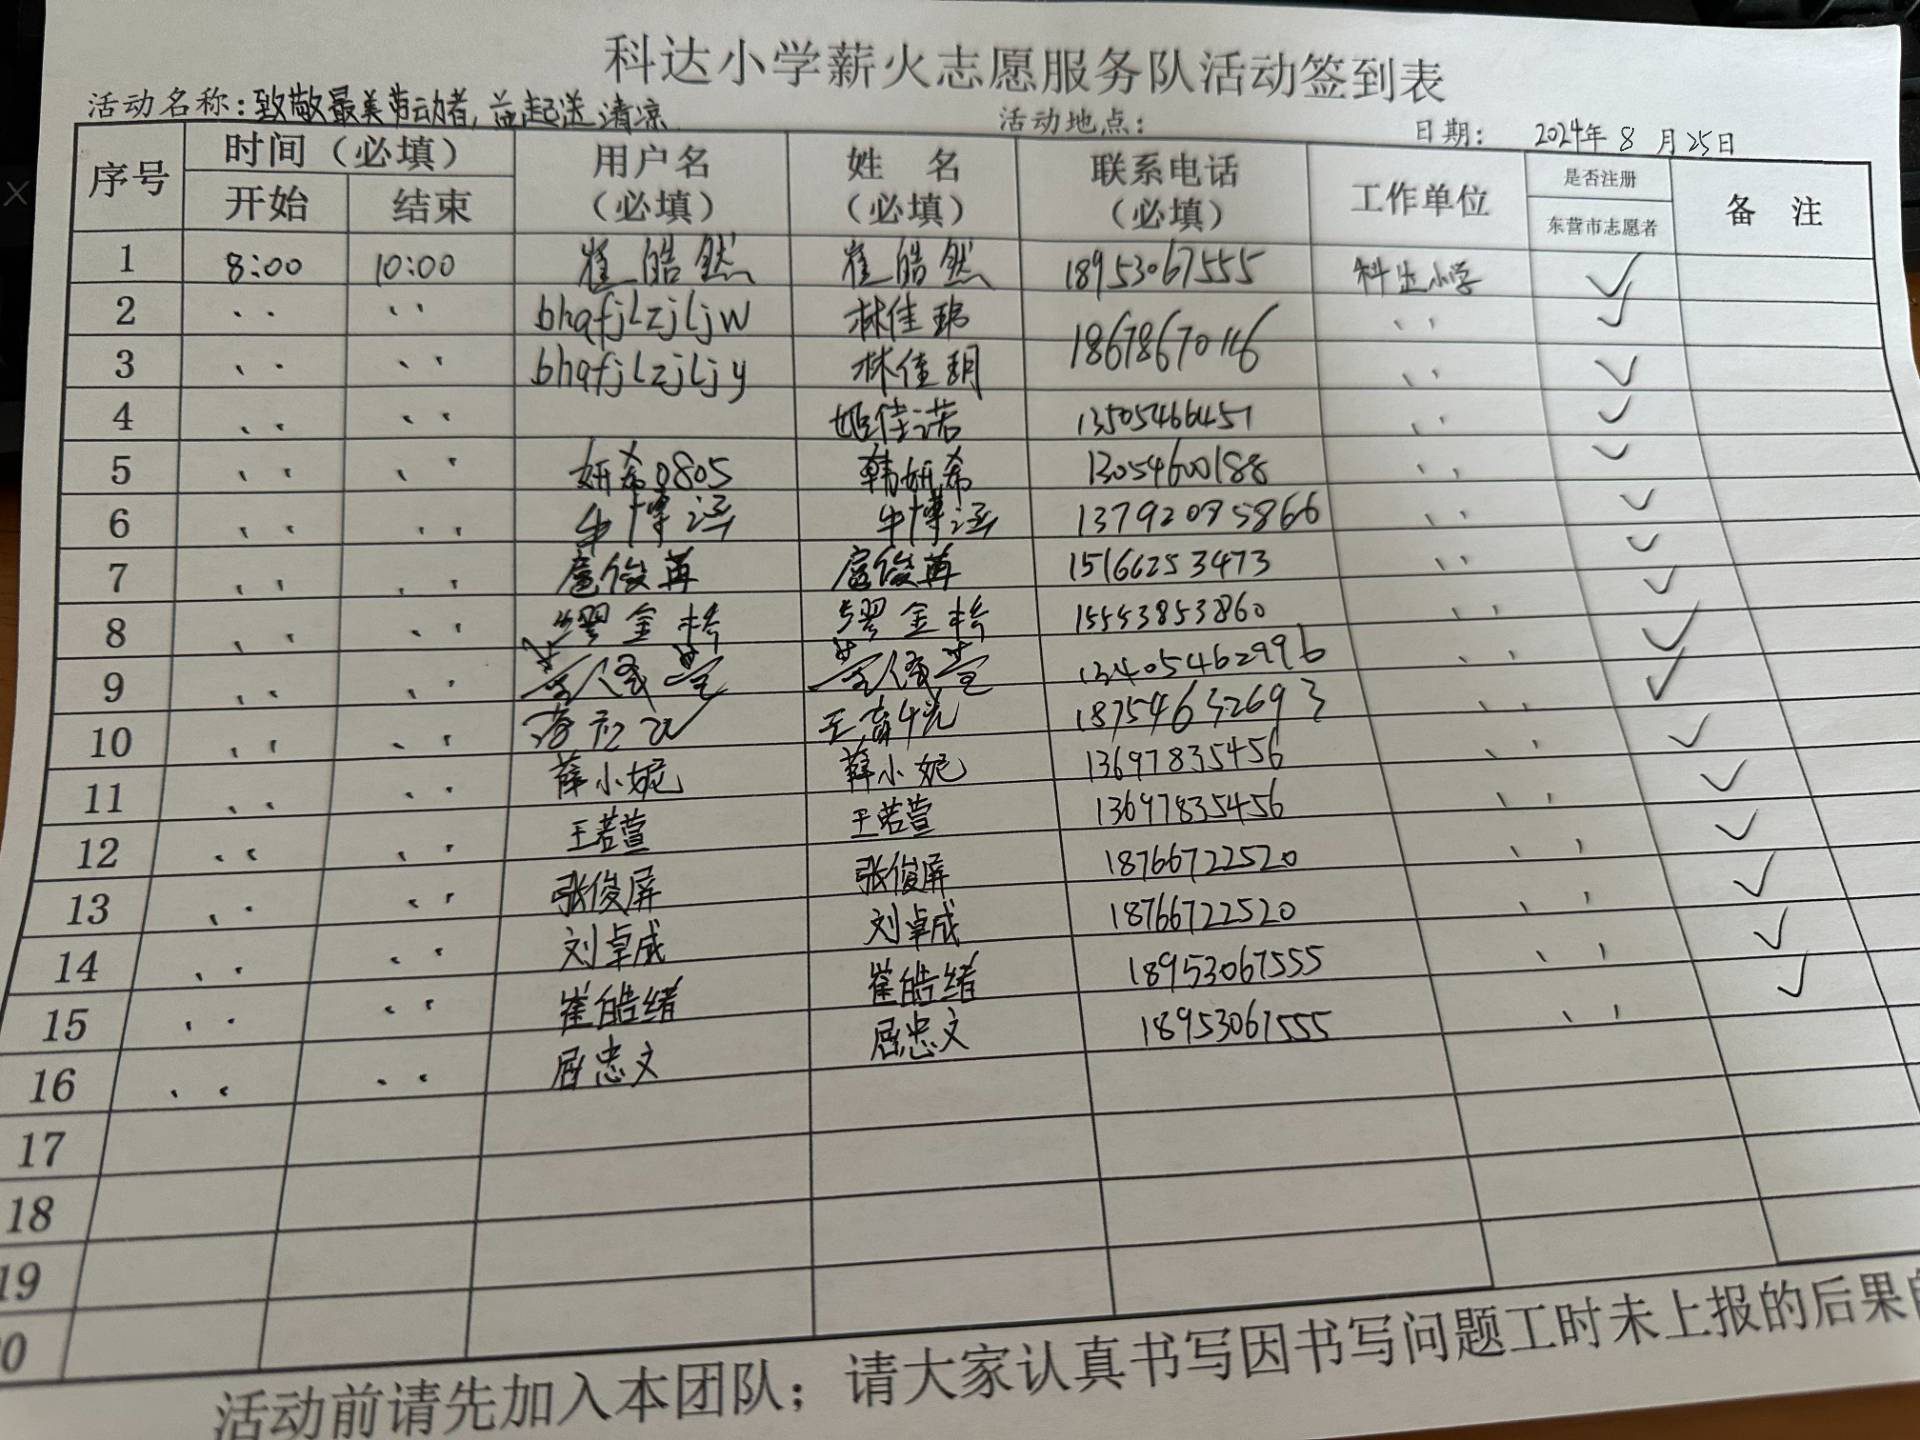 科达小学薪火志愿服务队活动签到表
活动名称:致敬最美劳动者,益起送清凉 活动地点: 日期: 2024年 8 月 25日
序号 时间(必填) 用户名(必填) 姓 名(必填) 联系电话(必填) 工作单位 是否注册 备 注
开始 结束 东营市志愿者
1 8:00 10:00 崔皓然 崔皓然 18953067555 科达小学 ✓
2 〃 〃 bhqfjlzjljw 林佳 18678670116 〃 ✓
3 〃 〃 bhqfjlzjljy 林佳玥 〃 ✓
4 〃 〃 姬佳诺 13505466451 〃 ✓
5 〃 〃 妍希0805 韩妍希 13054600188 〃 ✓
6 〃 〃 牛博涵 牛博涵 13792095866 〃 ✓
7 〃 〃 扈俊苒 扈俊苒 15166253473 〃 ✓
8 〃 〃 缪金 缪金 15553853860 〃 ✓
9 〃 〃 13405462996 〃 ✓
10 〃 〃 18754632693 〃 ✓
11 〃 〃 薛小妮 薛小妮 13697835456 〃 ✓
12 〃 〃 王若萱 王若萱 13697835456 〃 ✓
13 〃 〃 张俊屏 张俊屏 18766722520 〃 ✓
14 〃 〃 刘卓成 刘卓成 18766722520 〃 ✓
15 〃 〃 崔皓绪 崔皓绪 18953067555 〃 ✓
16 〃 〃 屈忠文 屈忠文 18953067555 〃 ✓
17
18
19
0
活动前请先加入本团队;请大家认真书写因书写问题工时未上报的后果自